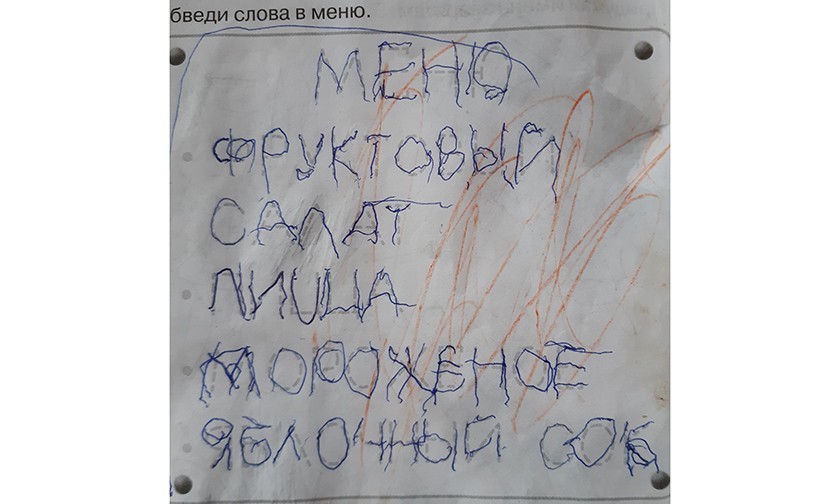 бведи слова в меню.
МЕНЮ
ФРУКТОВЫЙ
САЛАТ
ПИЦЦА
МОРОЖЕНОЕ
ЯБЛОЧНЫЙ СОК